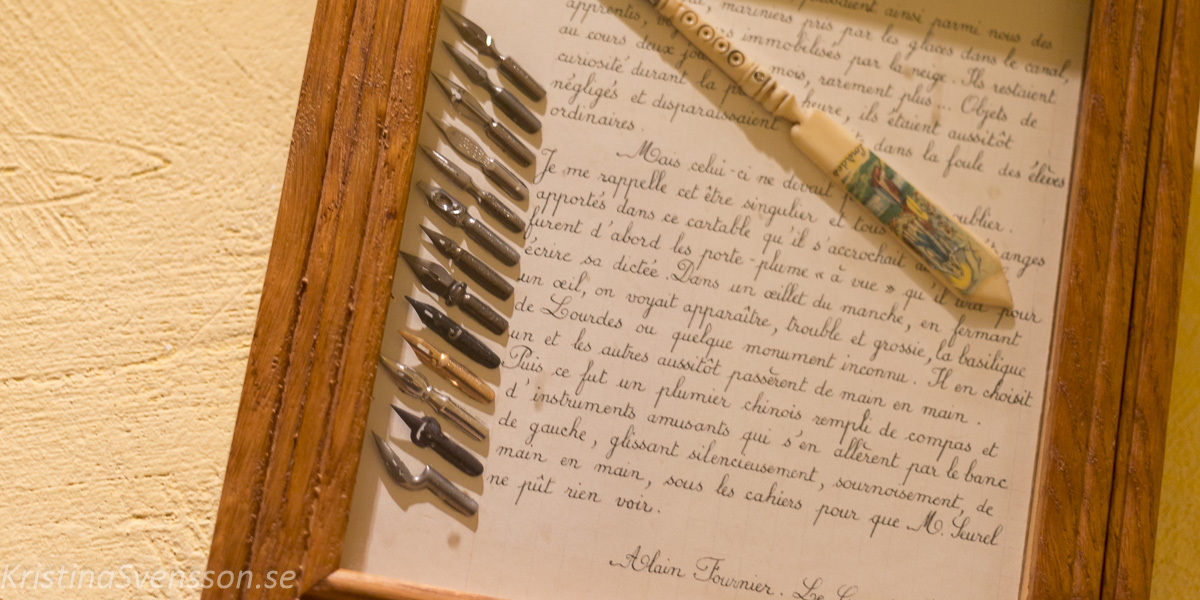 ssaient ainsi parmi nous des
mariniers pris par les glaces dans le canal,
apprentis, immobilisés par la neige. Ils restaient
au cours deux mois, rarement plus... Objets de
curiosité durant la heure, ils étaient aussitôt
négligés et disparaissaient dans la foule des élèves
ordinaires.
Mais celui-ci ne devait oublier.
Je me rappelle cet être singulier et tous anges
apportés dans ce cartable qu'il s'accrochait
furent d'abord les porte-plume « à vue » qu'il tira pour
écrire sa dictée. Dans un œillet du manche, en fermant
un œil, on voyait apparaître, trouble et grossie, la basilique
de Lourdes ou quelque monument inconnu. Il en choisit
un et les autres aussitôt passèrent de main en main.
Puis ce fut un plumier chinois rempli de compas et
d'instruments amusants qui s'en allèrent par le banc
de gauche, glissant silencieusement, sournoisement, de
main en main, sous les cahiers pour que M. Seurel
ne pût rien voir.
Alain Fournier. Le
Lourdes
KristinaSvensson.se